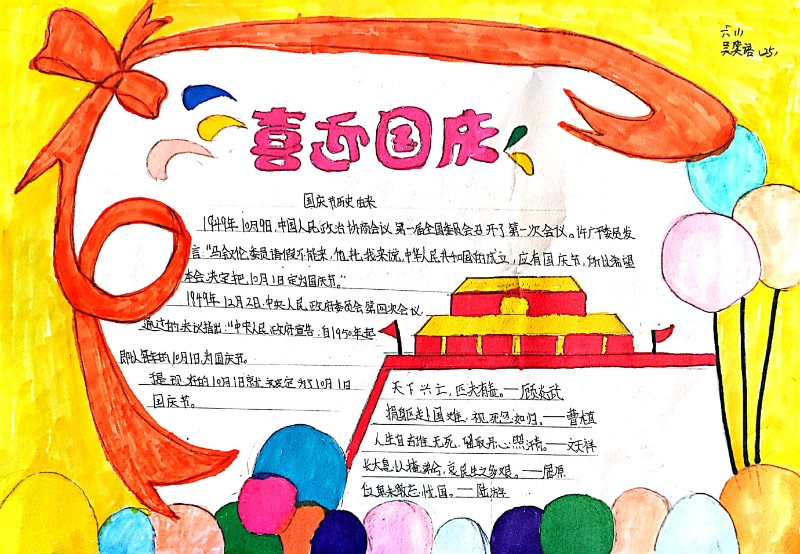 六山
吴奕语 25
喜迎国庆
国庆节历史由来
1949年10月9日,中国人民政治协商会议第一届全国委员会召开了第一次会议。许广平委员发
言:"马叙伦委员请假不能来,他托我来说,中华人民共和国的成立,应有国庆节,所以希望
本会决定把10月1日定为国庆节。"
1949年12月2日,中央人民政府委员会第四次会议
通过的决议指出:"中央人民政府宣告:自1950年起
即以每年的10月1日为国庆节。
的10月1日就被定为了10月1日
国庆节。
天下兴亡,匹夫有责。——顾炎武
捐躯赴国难,视死忽如归。——曹植
人生自古谁无死,留取丹心照汗青。——文天祥
长太息以掩涕兮,哀民生之多艰。——屈原
位卑未敢忘忧国。——陆游